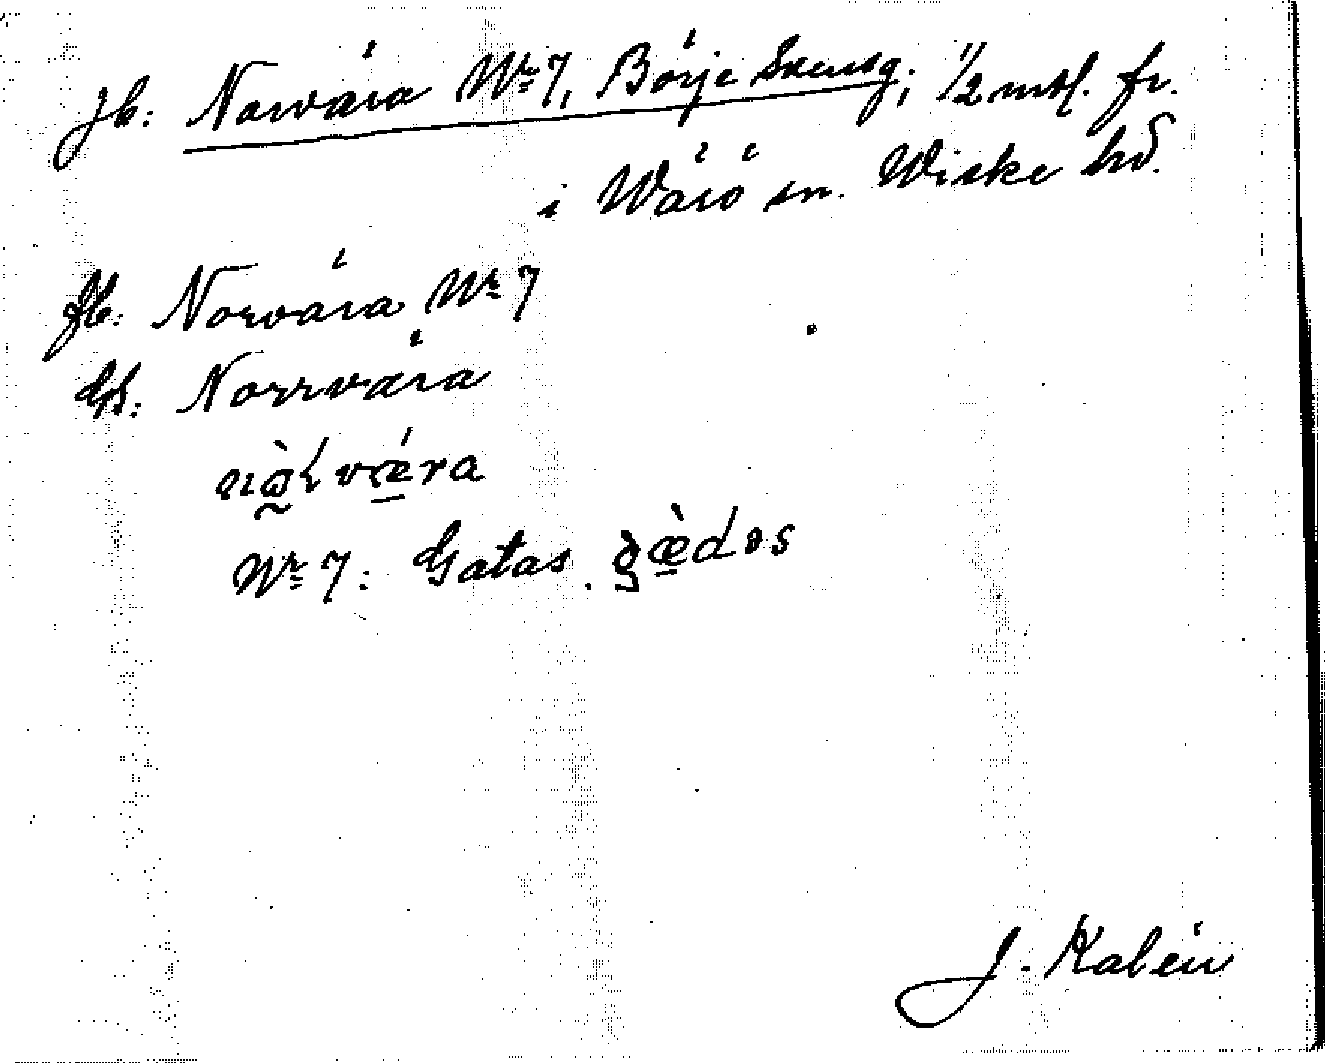 Jb: Norvära Nr 7, Börje Svensg; 1/2 mtl. fr.
i Wärö sn. Wiske hd.
Jb: Norvära Nr 7
Norrvära
Nr 7: Gatas.
J. Kalén